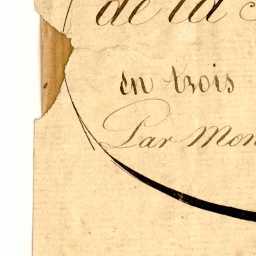 de la
en trois
Par Mon